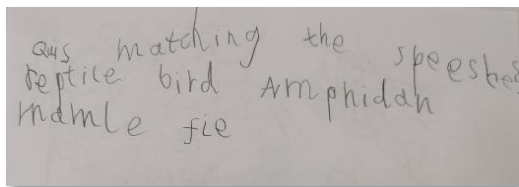 Quis matching the speeshes
reptile bird Amphidan
mamle fie